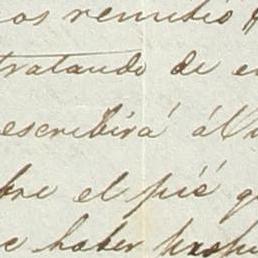 os remitió
tratando de
escribirá á
bre el pié
e haber